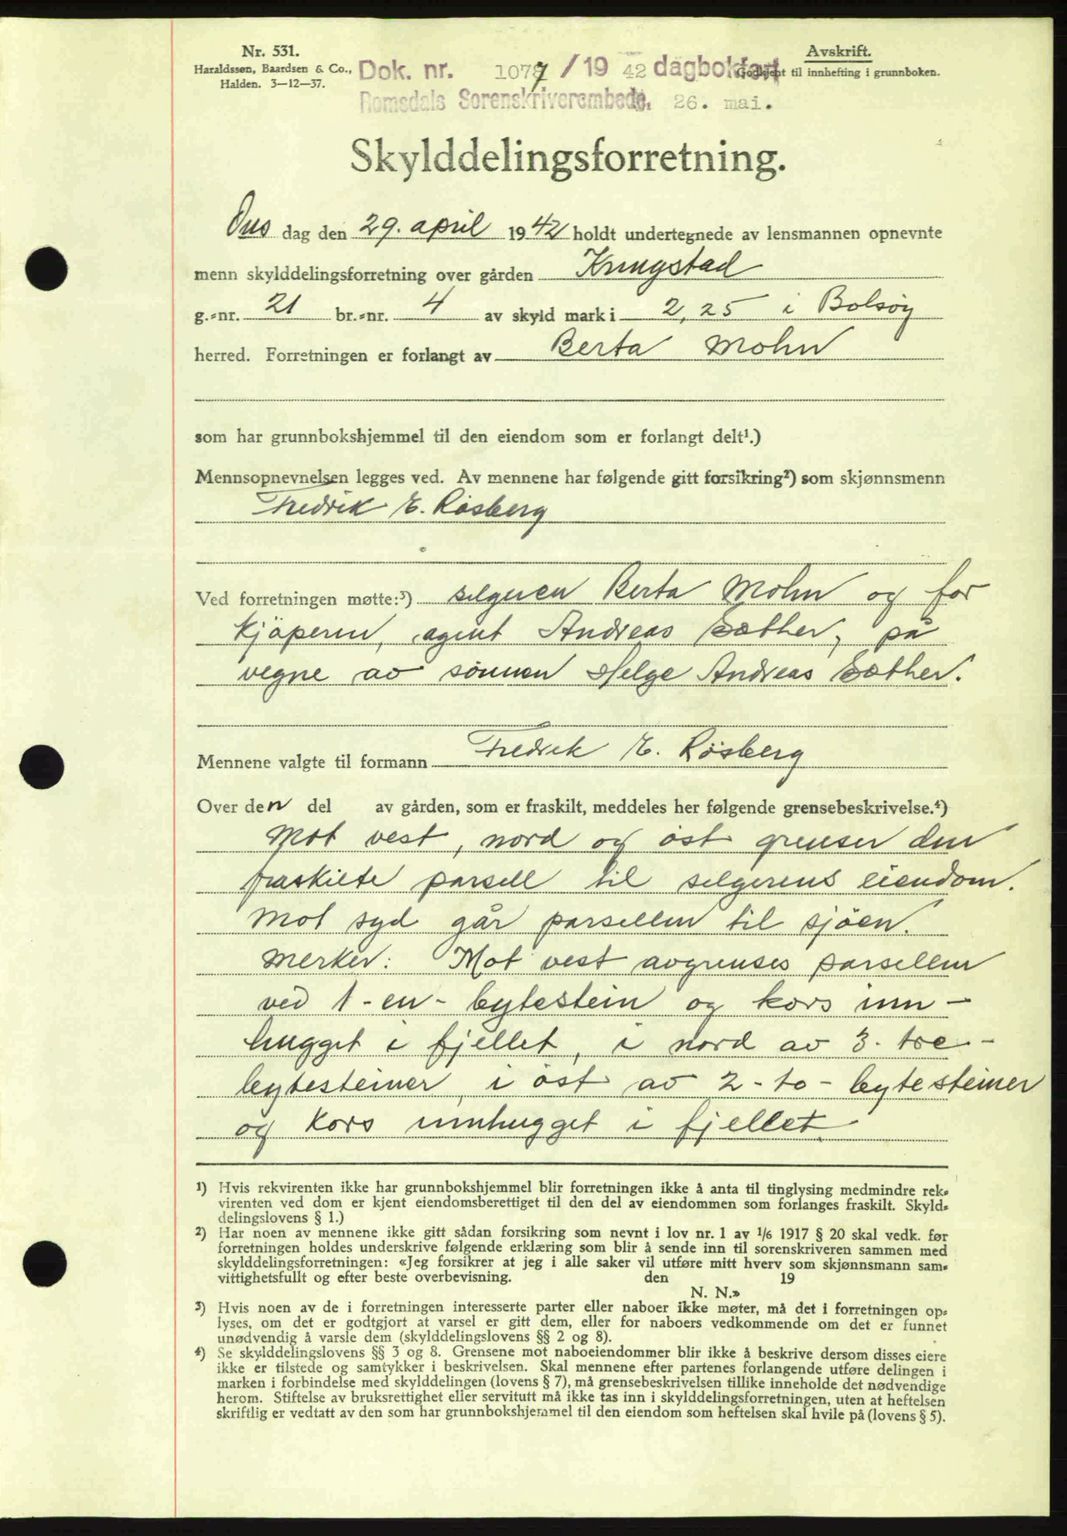 Nr. 531.
Haraldssen, Baardsen & Co.,
Halden. 3-12-37.
Avskrift.
Godkjent til innhefting i grunnboken.
Dok. nr. 1077/1942 dagbokført
Romsdals Sorenskriverembede, 26. mai.
Skylddelingsforretning.
Ons dag den 29. april 1942 holdt undertegnede av lensmannen opnevnte
menn skylddelingsforretning over gården Kringstad
g.-nr. 21 br.-nr. 4 av skyld mark i 2,25 i Bolsøy
herred. Forretningen er forlangt av Berta Mohn
som har grunnbokshjemmel til den eiendom som er forlangt delt¹.)
Mennsopnevnelsen legges ved. Av mennene har følgende gitt forsikring²) som skjønnsmenn
Fredrik E. Røsberg
Ved forretningen møtte:³) selgeren Berta Mohn og for
kjöperen, agent Andreas Sæther, på
vegne av sönnen Helge Andreas Sæther.
Mennene valgte til formann Fredrik E. Røsberg
Over den del av gården, som er fraskilt, meddeles her følgende grensebeskrivelse.⁴)
Mot vest, nord og öst grenser den
fraskilte parsell til selgerens eiendom.
Mot syd går parsellen til sjöen.
Merker: Mot vest avgrenses parsellen
ved 1-en- bytestein og kors inn-
hugget i fjellet, i nord av 3-tre-
bytesteiner, i öst av 2-to-bytesteiner
og kors innhugget i fjellet.
¹) Hvis rekvirenten ikke har grunnbokshjemmel blir forretningen ikke å anta til tinglysing medmindre rek-
virenten ved dom er kjent eiendomsberettiget til den del av eiendommen som forlanges fraskilt. Skyld-
delingslovens § 1.)
²) Har noen av mennene ikke gitt sådan forsikring som nevnt i lov nr. 1 av 1/6 1917 § 20 skal vedk. før
forretningen holdes underskrive følgende erklæring som blir å sende inn til sorenskriveren sammen med
skylddelingsforretningen: «Jeg forsikrer at jeg i alle saker vil utføre mitt hverv som skjønnsmann sam-
vittighetsfullt og efter beste overbevisning. den 19
N. N.»
³) Hvis noen av de i forretningen interesserte parter eller naboer ikke møter, må det i forretningen op-
lyses, om det er godtgjort at varsel er gitt dem, eller for naboers vedkommende om det er funnet
unødvendig å varsle dem (skylddelingslovens §§ 2 og 8).
⁴) Se skylddelingslovens §§ 3 og 8. Grensene mot naboeiendommer blir ikke å beskrive dersom disses eiere
ikke er tilstede og samtykker i beskrivelsen. Skal mennene efter partenes forlangende utføre delingen i
marken i forbindelse med skylddelingen (lovens § 7), må grensebeskrivelsen tillike inneholde det nødvendige
herom. Stiftelse av bruksrettighet eller servitutt må ikke tas inn i skylddelingsforretningen, uten at heftelsen
skriftlig er vedtatt av den som har grunnbokshjemmel til den eiendom som heftelsen skal hvile på (lovens § 5).